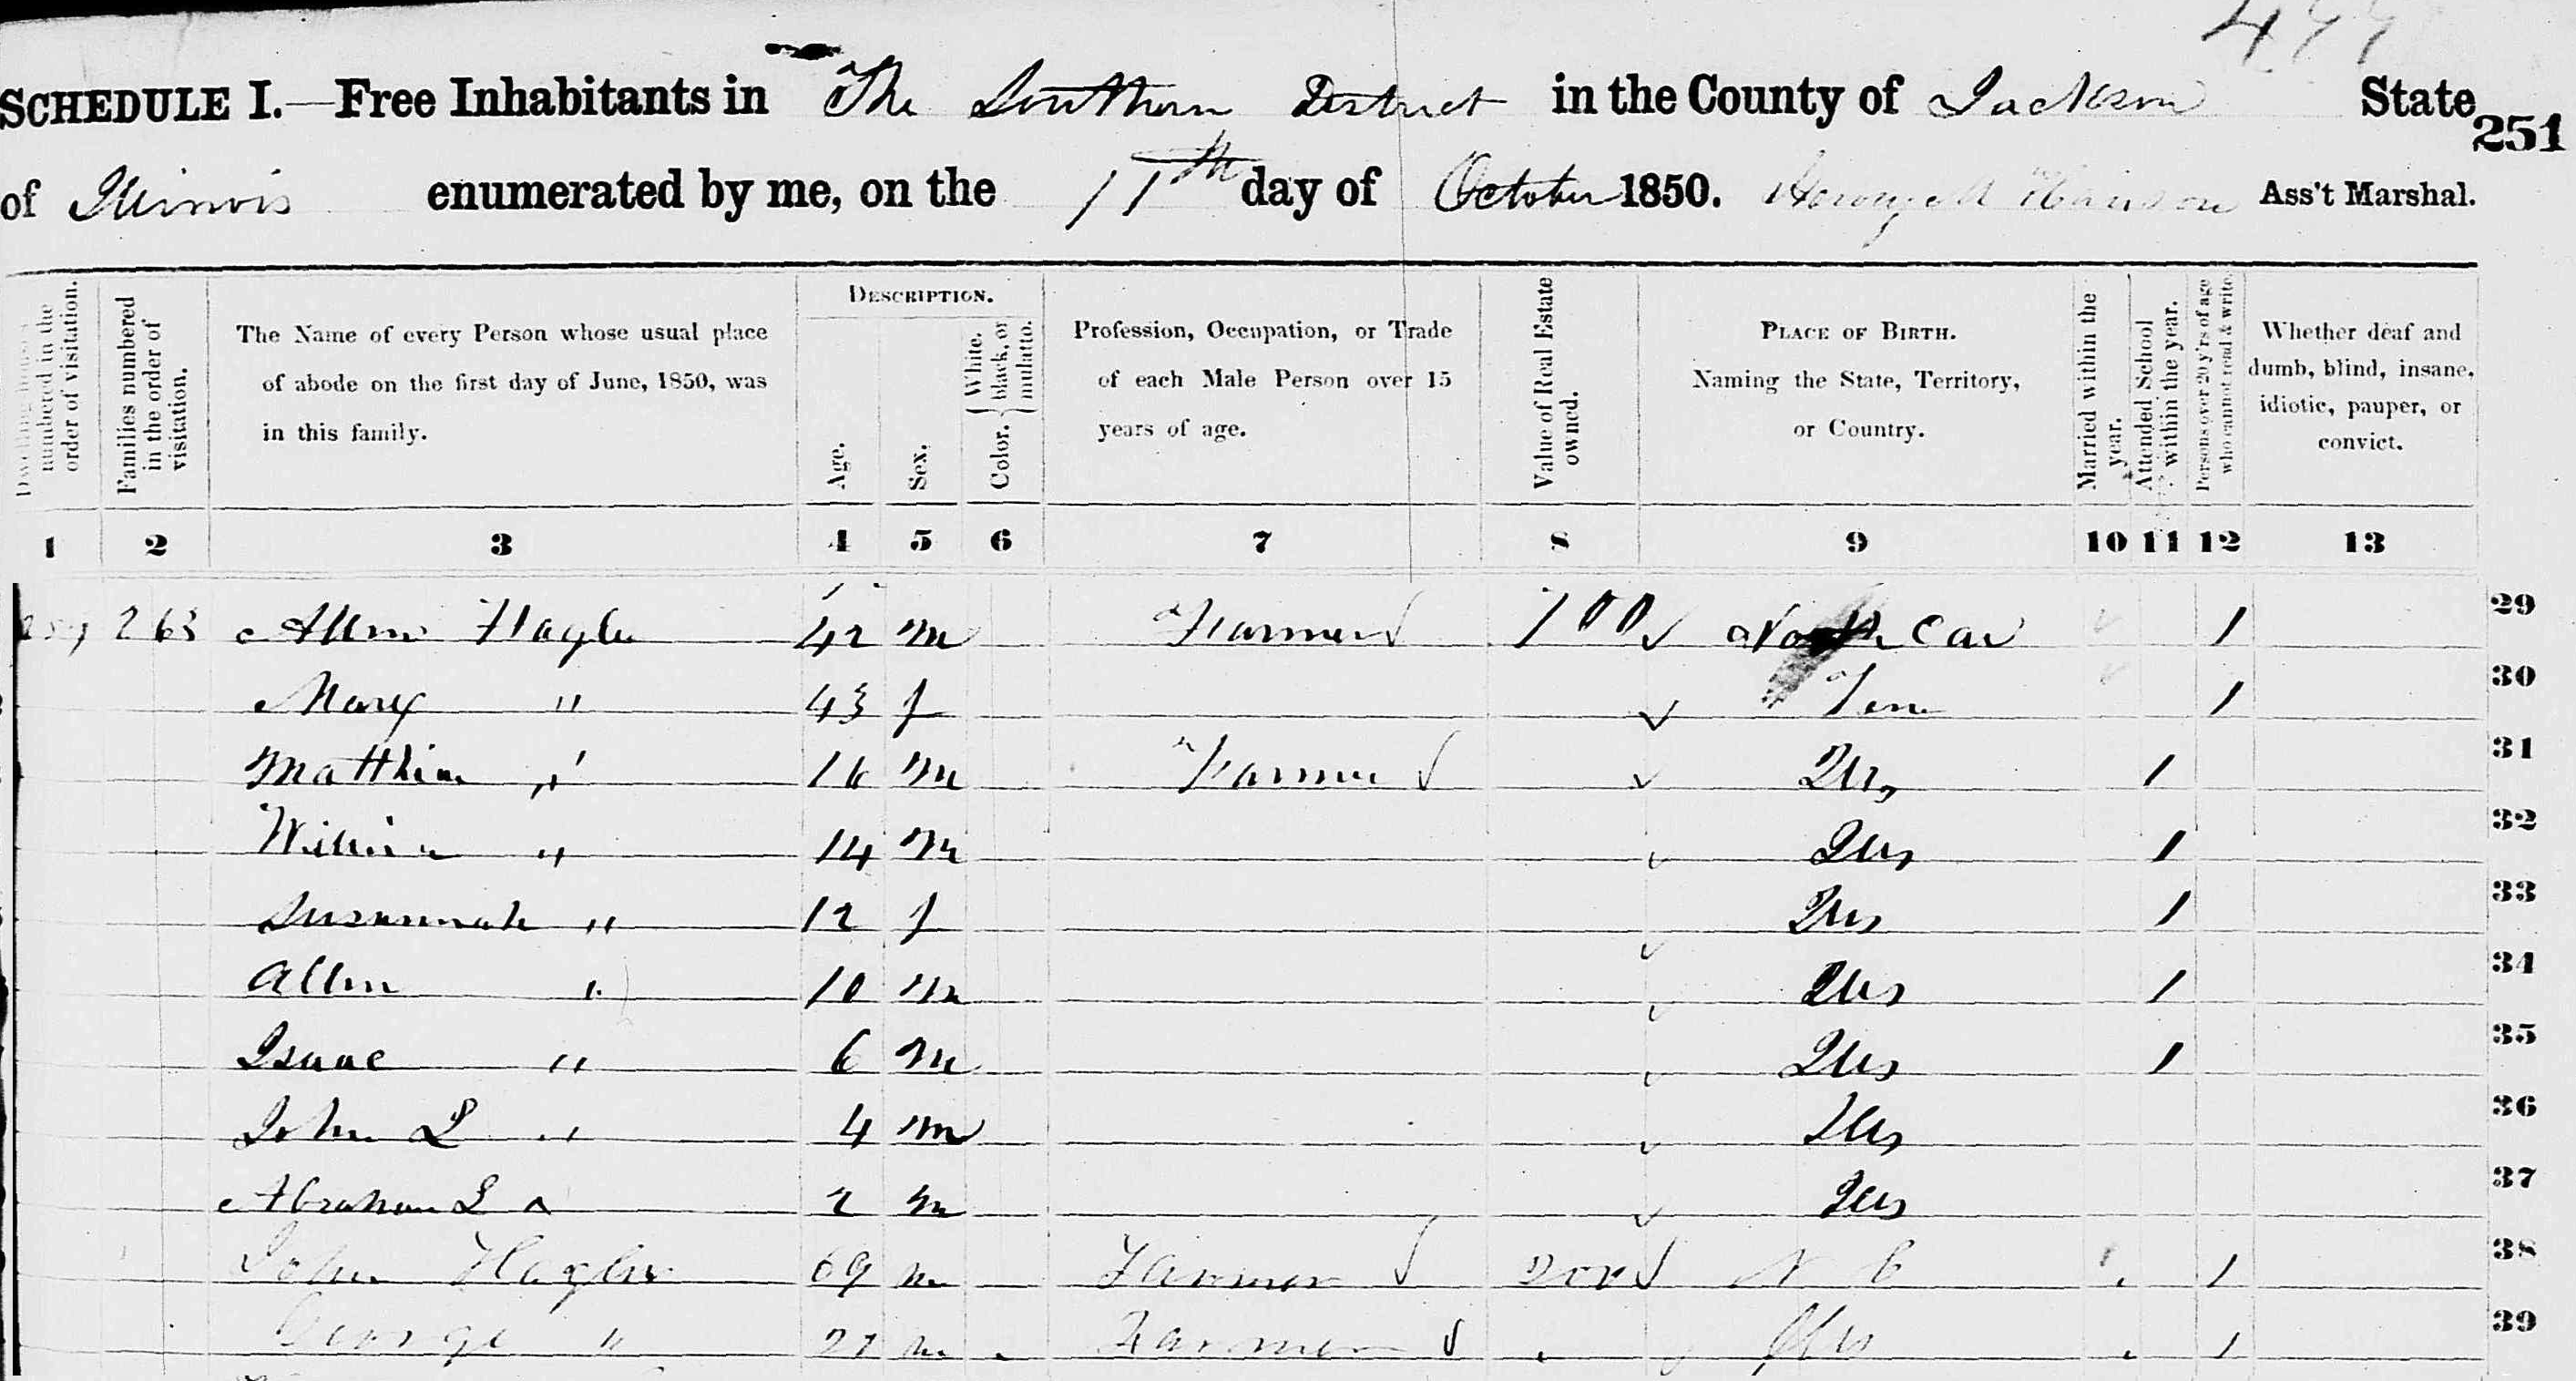 499
SCHEDULE I.—Free Inhabitants in The Southern District in the County of Jackson State
251
of Illinois enumerated by me, on the 11th day of October 1850. Ass't Marshal.
Dwelling houses numbered in the order of visitation.
Families numbered in the order of visitation.
The Name of every Person whose usual place
of abode on the first day of June, 1850, was
in this family.
DESCRIPTION.
Age.
Sex.
Color. { White, black, or mulatto.
Profession, Occupation, or Trade
of each Male Person over 15
years of age.
Value of Real Estate owned.
PLACE OF BIRTH.
Naming the State, Territory,
or Country.
Married within the year.
Attended School within the year.
Persons over 20 y'rs of age who cannot read & write.
Whether deaf and
dumb, blind, insane,
idiotic, pauper, or
convict.
1 2 3 4 5 6 7 8 9 10 11 12 13
263 Allen Hagler 42 m Farmer 700 North Car 1 29
Mary " 43 f Ten 1 30
Matthew " 16 m Farmer Ills 1 31
William " 14 m Ills 1 32
Susannah " 12 f Ills 1 33
Allen " 10 m Ills 1 34
Isaac " 6 m Ills 1 35
John L " 4 m Ills 36
Abraham L " 2 m Ills 37
John Hagler 69 m Farmer 200 N C 1 38
George " 27 m Farmer Ills 1 39